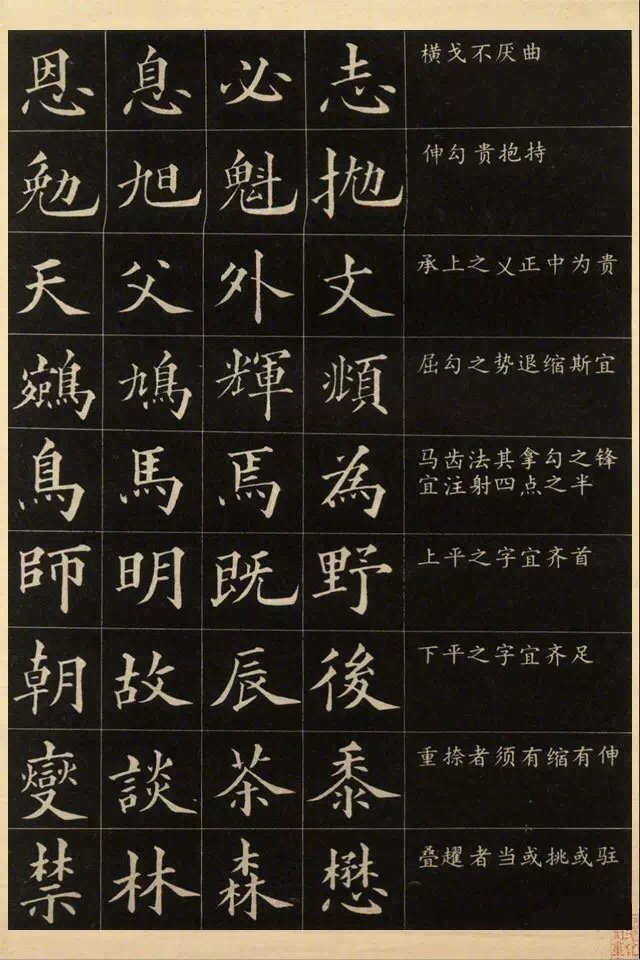 恩 息 必 志 横戈不厌曲
勉 旭 魁 抛 伸勾贵抱持
天 父 外 丈 承上之乂正中为贵
鳩 輝 頫 屈勾之势退缩斯宜
鳥 馬 焉 為 马齿法其拿勾之锋
宜注射四点之半
師 明 既 野 上平之字宜齐首
朝 故 辰 後 下平之字宜齐足
談 茶 黍 重捺者须有缩有伸
禁 林 森 懋 叠趯者当或挑或驻